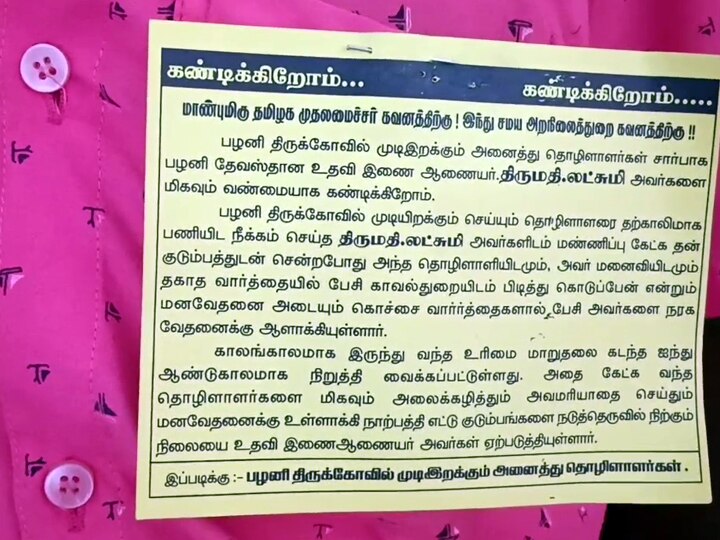 கண்டிக்கிறோம்... கண்டிக்கிறோம்.....
மாண்புமிகு தமிழக முதலமைச்சர் கவனத்திற்கு ! இந்து சமய அறநிலைத்துறை கவனத்திற்கு !!
பழனி திருக்கோவில் முடிஇறக்கும் அனைத்து தொழிளாளர்கள் சார்பாக
பழனி தேவஸ்தான உதவி இணை ஆணையர்.திருமதி.லட்சுமி அவர்களை
மிகவும் வண்மையாக கண்டிக்கிறோம்.
பழனி திருக்கோவில் முடியிறக்கும் செய்யும் தொழிளாளரை தற்காலிமாக
பணியிட நீக்கம் செய்த திருமதி.லட்சுமி அவர்களிடம் மண்ணிப்பு கேட்க தன்
குடும்பத்துடன் சென்றபோது அந்த தொழிளாளியிடமும், அவர் மனைவியிடமும்
தகாத வார்த்தையில் பேசி காவல்துறையிடம் பிடித்து கொடுப்பேன் என்றும்
மனவேதனை அடையும் கொச்சை வார்ர்த்தைகளால் பேசி அவர்களை நரக
வேதனைக்கு ஆளாக்கியுள்ளார்.
காலங்காலமாக இருந்து வந்த உரிமை மாறுதலை கடந்த ஐந்து
ஆண்டுகாலமாக நிறுத்தி வைக்கப்பட்டுள்ளது. அதை கேட்க வந்த
தொழிளாளர்களை மிகவும் அலைக்கழித்தும் அவமரியாதை செய்தும்
மனவேதனைக்கு உள்ளாக்கி நாற்பத்தி எட்டு குடும்பங்களை நடுத்தெருவில் நிற்கும்
நிலையை உதவி இணைஆணையர் அவர்கள் ஏற்படுத்தியுள்ளார்.
இப்படிக்கு :- பழனி திருக்கோவில் முடிஇறக்கும் அனைத்து தொழிளாளர்கள் .